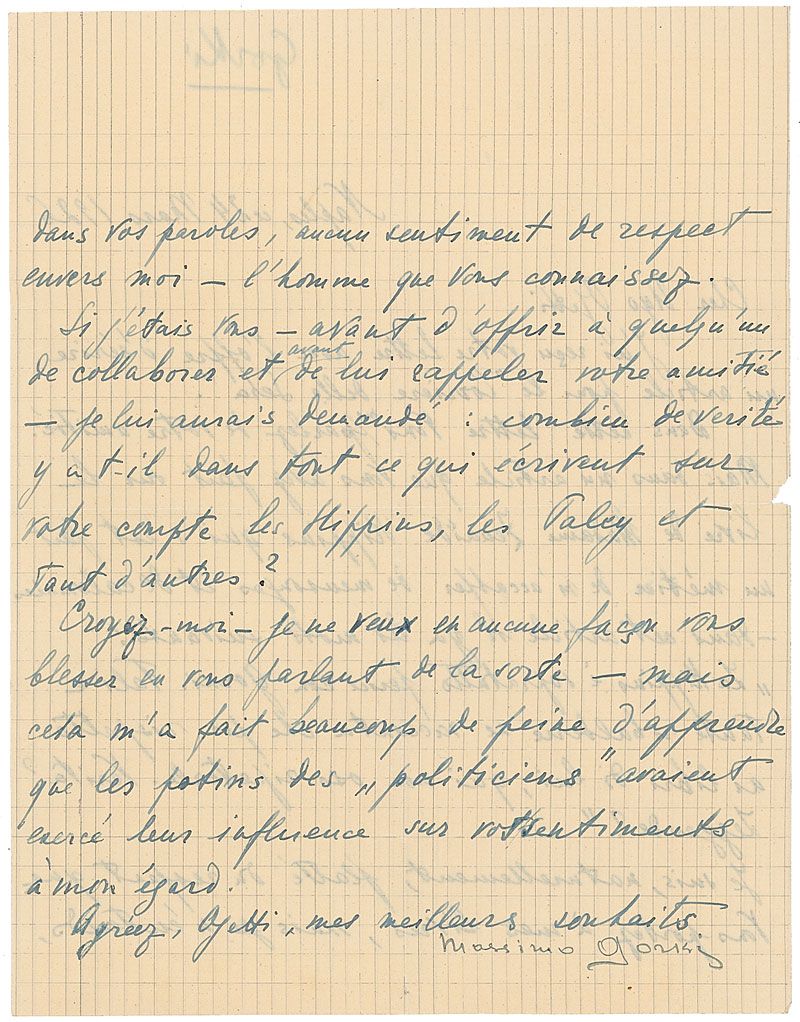 dans vos paroles, aucun sentiment de respect
envers moi — l'homme que vous connaissez.
Si j'étais vous — avant d'offrir à quelqu'un
de collaborer et avant de lui rappeler votre amitié
— je lui aurais demandé : combien de verité
y a t-il dans tout ce qui écrivent sur
votre compte les Hippius, les Talcy et
tant d'autres?
Croyez-moi — je ne veux en aucune façon vous
blesser en vous parlant de la sorte — mais
cela m'a fait beaucoup de peine d'apprendre
que les potins des „politiciens" avaient
exercé leur influence sur vos sentiments
à mon égard.
Agréez, Ojetti, mes meilleurs souhaits
Massimo Gorki